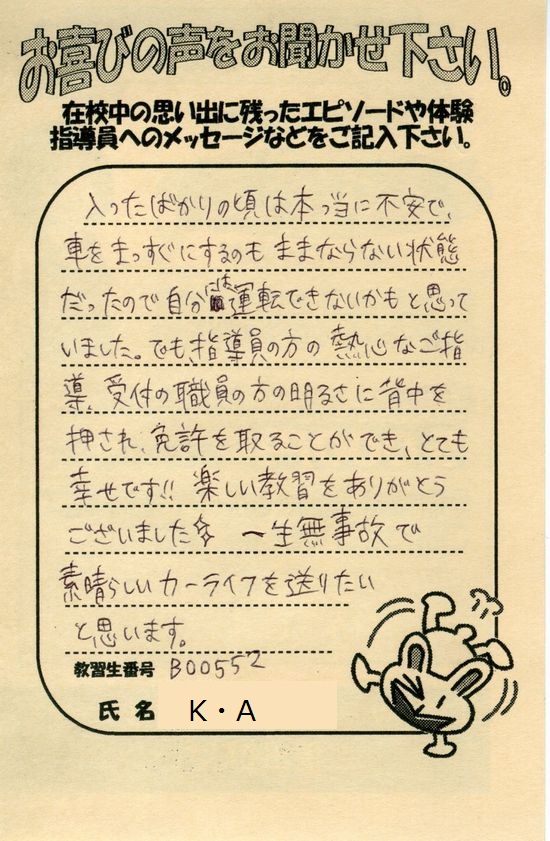 お喜びの声をお聞かせ下さい。
在校中の思い出に残ったエピソードや体験
指導員へのメッセージなどをご記入下さい。
入ったばかりの頃は本当に不安で、
車をまっすぐにするのもままならない状態
だったので自分には運転できないかもと思って
いました。でも、指導員の方の熱心なご指
導、受付の職員の方の明るさに背中を
押され、免許を取ることができ、とても
幸せです!! 楽しい教習をありがとう
ございました☆ 一生無事故で
素晴らしいカーライフを送りたい
と思います。
教習生番号 B00552
氏名 K・A